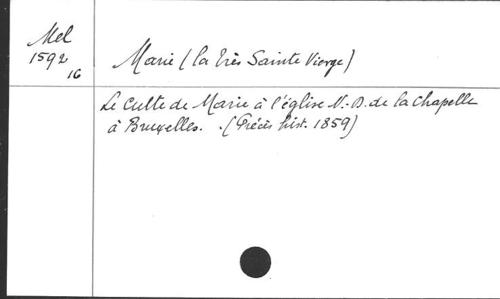 Mel
1592
16
Marie (la très Sainte Vierge)
Le culte de Marie à l'église N.-D. de la Chapelle
à Bruxelles. . (Précis hist. 1859)